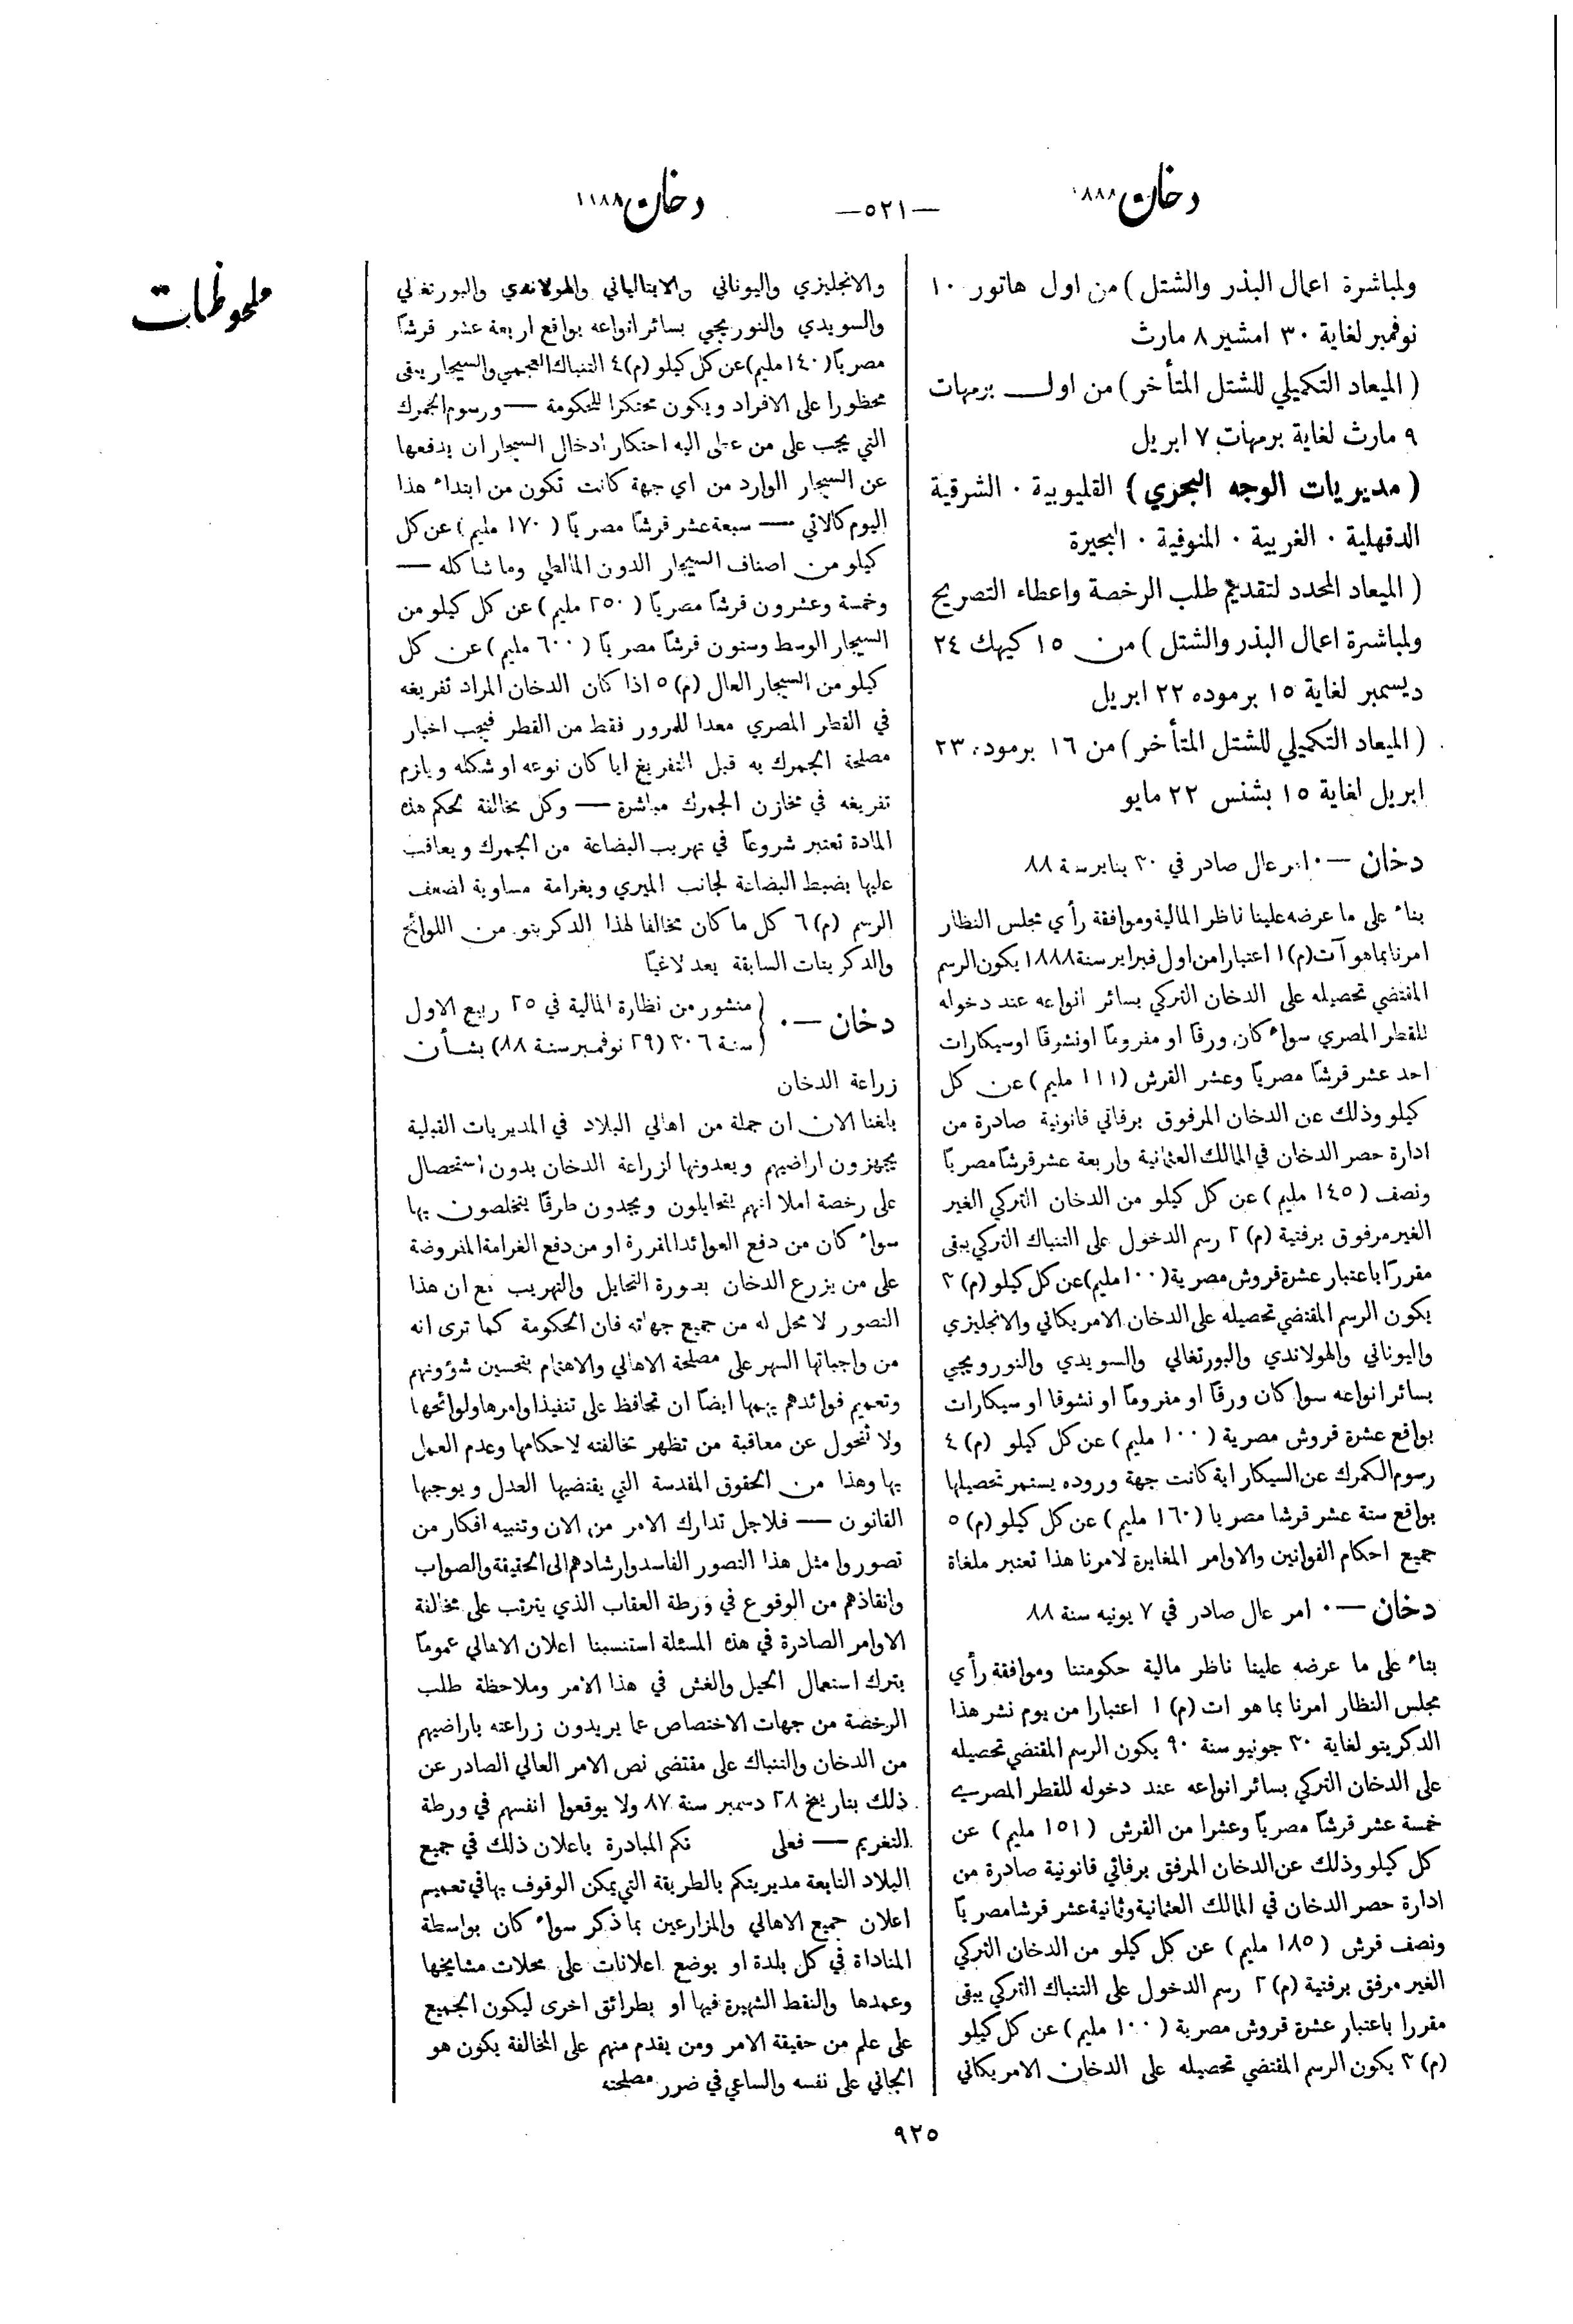 دخان ١٨٨٨
—٥٢١—
دخان ١٨٨
ملحوظات
ولمباشرة اعمال البذر والشتل) من اول هاتور ١٠
نوفمبر لغاية ٣٠ امشير ٨ مارث
(الميعاد التكميلي للشتل المتأخر) من اول برمهات
٩ مارث لغاية برمهات ٧ ابريل
(مديريات الوجه البحري) القليوبية ٠ الشرقية
الدقهلية ٠ الغربية ٠ المنوفية ٠ البحيرة
(الميعاد المحدد لتقديم طلب الرخصة واعطاء التصريح
ولمباشرة اعمال البذر والشتل) من ١٥ كيهك ٢٤
ديسمبر لغاية ١٥ برموده ٢٢ ابريل
(الميعاد التكميلي للشتل المتأخر) من ١٦ برموده ٢٣
ابريل لغاية ١٥ بشنس ٢٢ مايو
دخان —٠ امر عال صادر في ٣٠ يناير سنة ٨٨
بناء على ما عرضه علينا ناظر المالية وموافقة رأي مجلس النظار
امرنا بما هو آت (م) ١ اعتبارا من اول فبراير سنة ١٨٨٨ يكون الرسم
المقتضي تحصيله على الدخان التركي بسائر انواعه عند دخوله
للقطر المصري سواء كان ورقا او مفروما او نشوقا او سيكارات
احد عشر قرشا مصريا وعشر القرش (١١١ مليم) عن كل
كيلو وذلك عن الدخان المرفوق برفاتي قانونية صادرة من
ادارة حصر الدخان في الممالك العثمانية واربعة عشر قرشا مصريا
ونصف (١٤٥ مليم) عن كل كيلو من الدخان التركي الغير
الغير مرفوق برفتية (م) ٢ رسم الدخول على التنباك التركي يبقى
مقررا باعتبار عشرة قروش مصرية (١٠٠ مليم) عن كل كيلو (م) ٣
يكون الرسم المقتضي تحصيله على الدخان الامريكاني والانجليزي
واليوناني والهولاندي والبورتغالي والسويدي والنورويجي
بسائر انواعه سوا كان ورقا او مفروما او نشوقا او سيكارات
بواقع عشرة قروش مصرية (١٠٠ مليم) عن كل كيلو (م) ٤
رسوم الكمرك عن السيكار اية كانت جهة وروده يستمر تحصيلها
بواقع ستة عشر قرشا مصريا (١٦٠ مليم) عن كل كيلو (م) ٥
جميع احكام القوانين والاوامر المغايرة لامرنا هذا تعتبر ملغاة
دخان —٠ امر عال صادر في ٧ يونيه سنة ٨٨
بناء على ما عرضه علينا ناظر مالية حكومتنا وموافقة رأي
مجلس النظار امرنا بما هو ات (م) ١ اعتبارا من يوم نشر هذا
الدكريتو لغاية ٣٠ جونيو سنة ٩٠ يكون الرسم المقتضي تحصيله
على الدخان التركي بسائر انواعه عند دخوله للقطر المصري
خمسة عشر قرشا مصريا وعشرا من القرش (١٥١ مليم) عن
كل كيلو وذلك عن الدخان المرفق برفاتي قانونية صادرة من
ادارة حصر الدخان في الممالك العثمانية وثمانية عشر قرشا مصريا
ونصف قرش (١٨٥ مليم) عن كل كيلو من الدخان التركي
الغير مرفق برفتية (م) ٢ رسم الدخول على التنباك التركي يبقى
مقررا باعتبار عشرة قروش مصرية (١٠٠ مليم) عن كل كيلو
(م) ٣ يكون الرسم المقتضي تحصيله على الدخان الامريكاني
والانجليزي واليوناني والايتالياني والهولاندي والبورتغالي
والسويدي والنوريجي بسائر انواعه بواقع اربعة عشر قرشا
مصريا (١٤٠ مليم) عن كل كيلو (م) ٤ التنباك العجمي والسيجار يبقى
محظورا على الافراد ويكون محتكرا للحكومة — ورسوم الجمرك
التي يجب على من عطى اليه احتكار ادخال السيجار ان يدفعها
عن السيجار الوارد من اي جهة كانت تكون من ابتداء هذا
اليوم كالاتي — سبعة عشر قرشا مصريا (١٧٠ مليم) عن كل
كيلو من اصناف السيجار الدون المالطي وما شاكله —
وخمسة وعشرون قرشا مصريا (٢٥٠ مليم) عن كل كيلو من
السيجار الوسط وستون قرشا مصريا (٦٠٠ مليم) عن كل
كيلو من السيجار العال (م) ٥ اذا كان الدخان المراد تفريغه
في القطر المصري معدا للمرور فقط من القطر فيجب اخبار
مصلحة الجمرك به قبل التفريغ ايا كان نوعه او شكله ويلزم
تفريغه في مخازن الجمرك مباشرة — وكل مخالفة لحكم هذه
المادة تعتبر شروعا في تهريب البضاعة من الجمرك ويعاقب
عليها بضبط البضاعة لجانب الميري وبغرامة مساوية لضعف
الرسم (م) ٦ كل ما كان مخالفا لهذا الدكريتو من اللوائح
والدكريتات السابقة يعد لاغيا
دخان —٠ (منشور من نظارة المالية في ٢٥ ربيع الاول
(سنة ٣٠٦ (٢٩ نوفمبر سنة ٨٨) بشأن
زراعة الدخان
بلغنا الان ان جملة من اهالي البلاد في المديريات القبلية
يجهزون اراضيهم ويعدونها لزراعة الدخان بدون استحصال
على رخصة املا انهم يتحايلون ويجدون طرقا يتخلصون بها
سواء كان من دفع العوائد المقررة او من دفع الغرامة المفروضة
على من يزرع الدخان بصورة التحايل والتهريب مع ان هذا
التصور لا محل له من جميع جهاته فان الحكومة كما ترى انه
من واجباتها السهر على مصلحة الاهالي والاهتمام بتحسين شؤونهم
وتعميم فوائدهم يهمها ايضا ان تحافظ على تنفيذ اوامرها ولوائحها
ولا تتحول عن معاقبة من تظهر مخالفته لاحكامها وعدم العمل
بها وهذا من الحقوق المقدسة التي يقتضيها العدل ويوجبها
القانون — فلاجل تدارك الامر من الان وتنبيه افكار من
تصوروا مثل هذا التصور الفاسد وارشادهم الى الحقيقة والصواب
وانقاذهم من الوقوع في ورطة العقاب الذي يترتب على مخالفة
الاوامر الصادرة في هذه المسئلة استنسبنا اعلان الاهالي عموما
بترك استعمال الحيل والغش في هذا الامر وملاحظة طلب
الرخصة من جهات الاختصاص عما يريدون زراعته باراضيهم
من الدخان والتنباك على مقتضى نص الامر العالي الصادر عن
ذلك بتاريخ ٢٨ دسمبر سنة ٨٧ ولا يوقعوا انفسهم في ورطة
التغريم — فعلى نكم المبادرة باعلان ذلك في جميع
البلاد التابعة مديريتكم بالطريقة التي يمكن الوقوف بها في تعميم
اعلان جميع الاهالي والمزارعين بما ذكر سواء كان بواسطة
المناداة في كل بلدة او بوضع اعلانات على محلات مشايخها
وعمدها والنقط الشهيرة فيها او بطرائق اخرى ليكون الجميع
على علم من حقيقة الامر ومن يقدم منهم على المخالفة يكون هو
الجاني على نفسه والساعي في ضرر مصلحته
٩٢٥